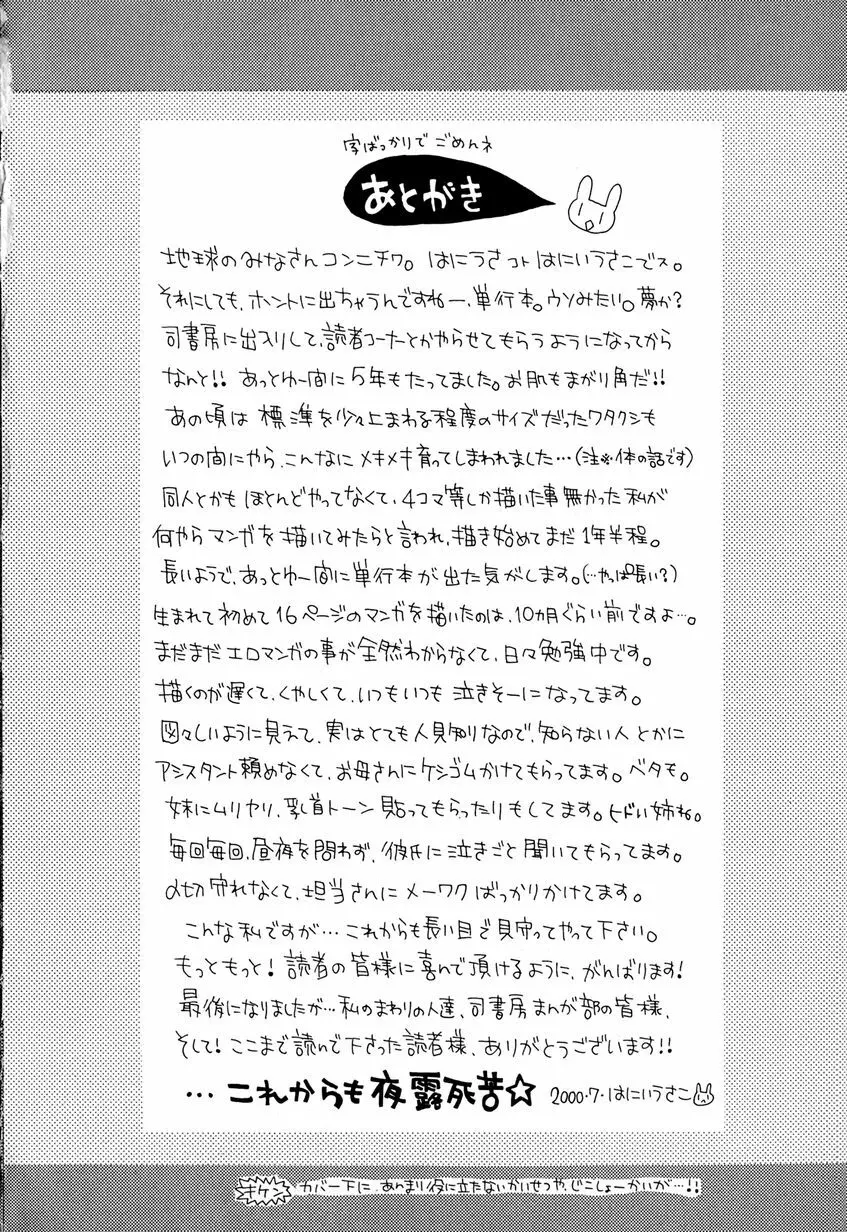 字ばっかりでごめんネ
あとがき
地球のみなさんコンニチワ。はにうさコト はにいうさこでス。
それにしても、ホントに出ちゃうんですねー、単行本。ウソみたい。夢か?
司書房に出入りして、読者コーナーとかやらせてもらうようになってから
なんと!! あっとゆー間に5年もたってました。お肌もまがり角だ!!
あの頃は 標準を少々上まわる程度のサイズだったワタクシも
いつの間にやら、こんなに メキメキ育ってしまわれました…(注※体の話です)
同人とかも ほとんどやってなくて、4コマ等しか描いた事無かった私が
何やら マンガを描いてみたらと言われ、描き始めてまだ1年半程。
長いようで、あっとゆー間に単行本が出た気がします。(…やっぱ長い?)
生まれて初めて16ページのマンガを描いたのは、10カ月ぐらい前ですよ…。
まだまだエロマンガの事が全然わからなくて、日々勉強中です。
描くのが遅くて、くやしくて、いつもいつも 泣きそーになってます。
図々しいように見えて、実はとても人見知りなので、知らない人とかに
アシスタント頼めなくて、お母さんにケシゴムかけてもらってます。ベタも。
妹にムリヤリ、乳首トーン貼ってもらったりもしてます。ヒドい姉ね。
毎回毎回、昼夜を問わず、彼氏に泣きごと聞いてもらってます。
〆切守れなくて、担当さんにメーワクばっかりかけてます。
こんな私ですが… これからも長い目で見守ってやって下さい。
もっともっと! 読者の皆様に喜んで頂けるように、がんばります!
最後になりましたが…私のまわりの人達、司書房まんが部の皆様、
そして! ここまで読んで下さった読者様、ありがとうございます!!
…これからも夜露死苦☆ 2000・7・はにいうさこ
キケン カバー下に、あんまり役に立たないかいせつや、じこしょーかいが…!!